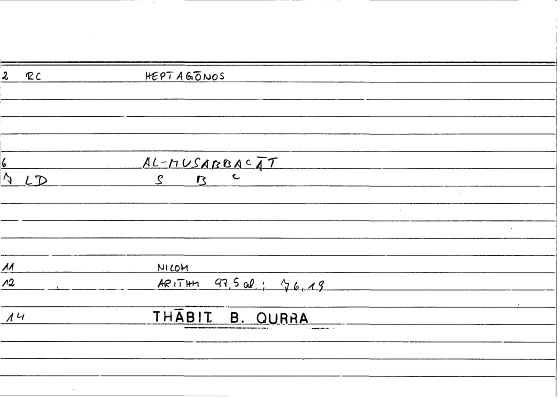 2 RC HEPTAGŌNOS
6 AL-MUSABBAʿĀT
7 LD S B ʿ
11 NICOM
12 ARITHM 97,5 al.; 76,19
14 THĀBIT. B. QURRA